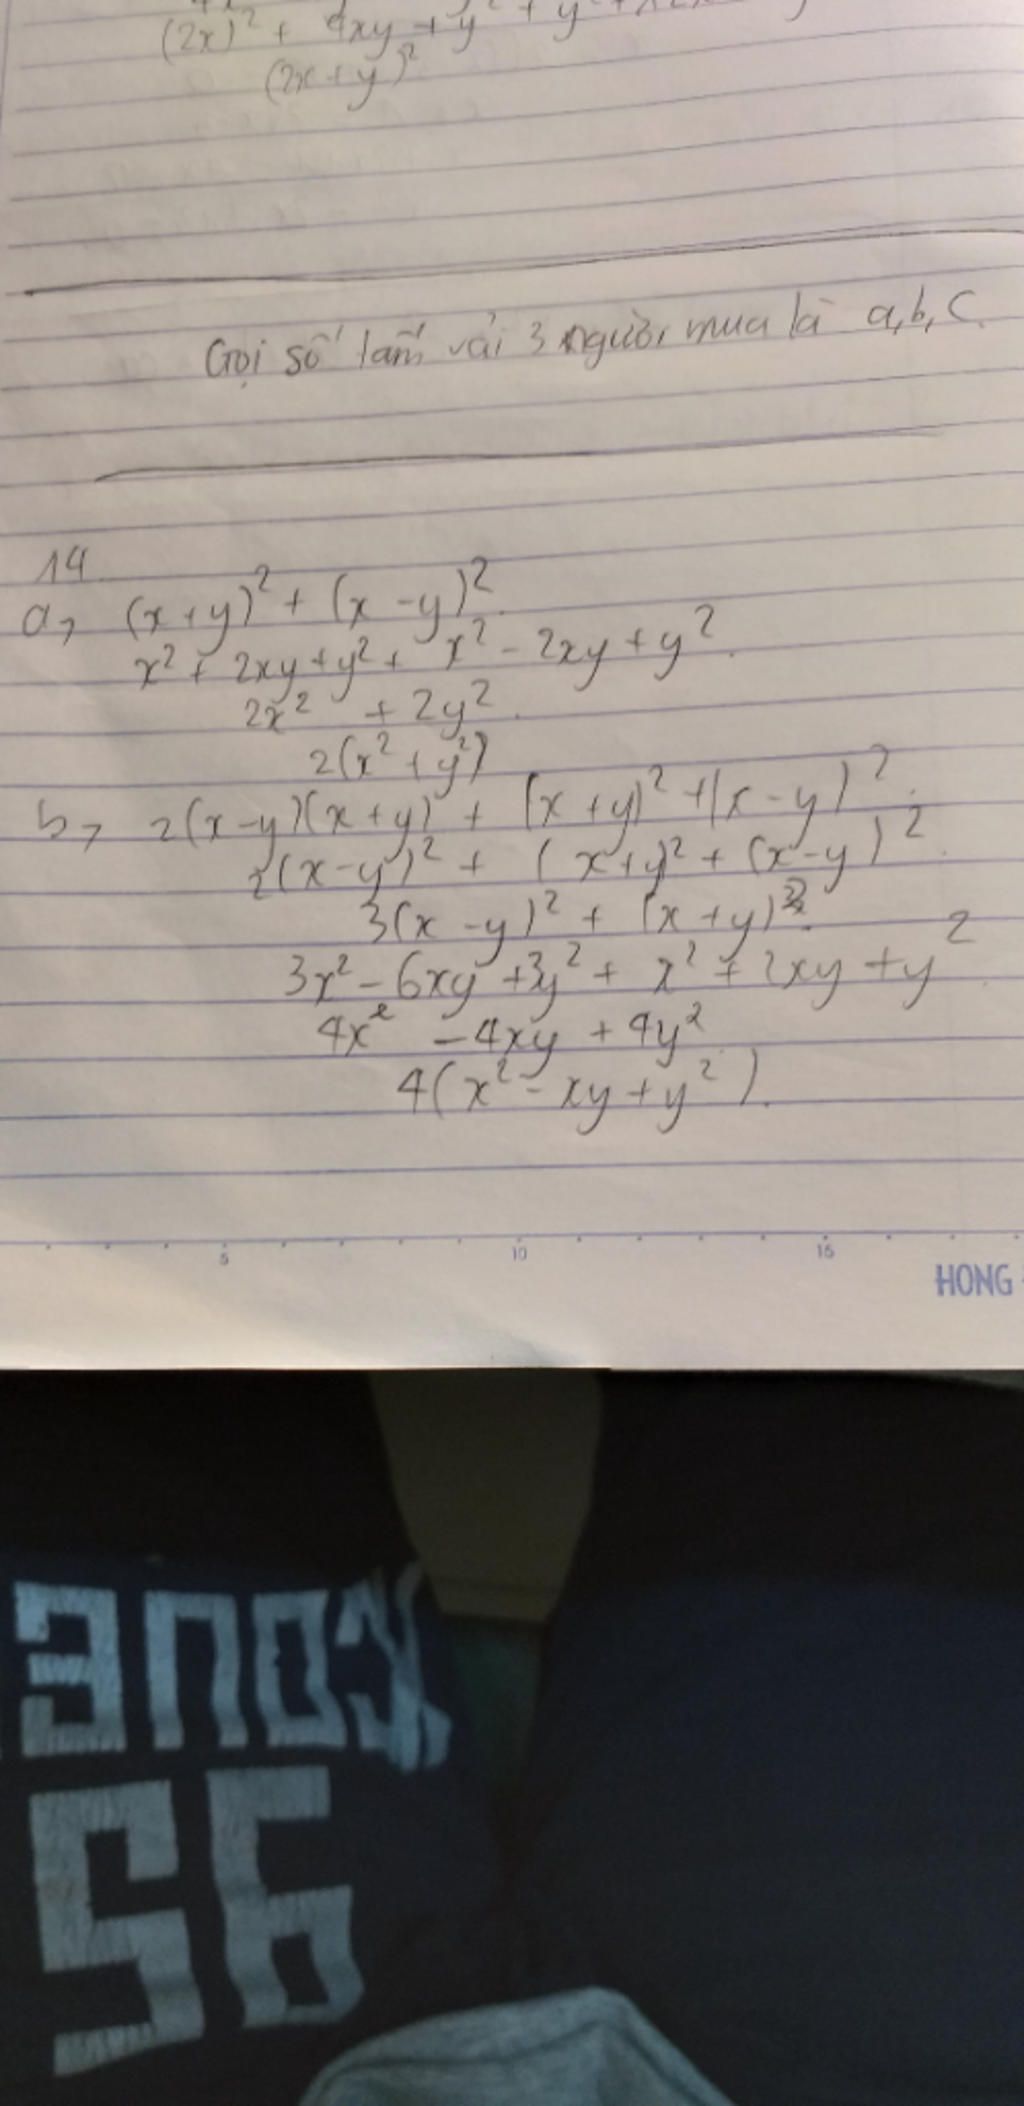 (2x)² + 4xy + y² + y²
(2x+y)²
Gọi số tấm vải 3 người mua là a, b, c.
14
a, (x+y)² + (x-y)².
x² + 2xy + y² + x² - 2xy + y².
2x² + 2y².
2(x² + y²)
b, 2(x-y)(x+y) + (x+y)² + (x-y)².
2(x-y)² + (x+y)² + (x-y)².
3(x-y)² + (x+y)².
3x² - 6xy + 3y² + x² + 2xy + y².
4x² - 4xy + 4y²
4(x² - xy + y²).
5 10 15
HONG